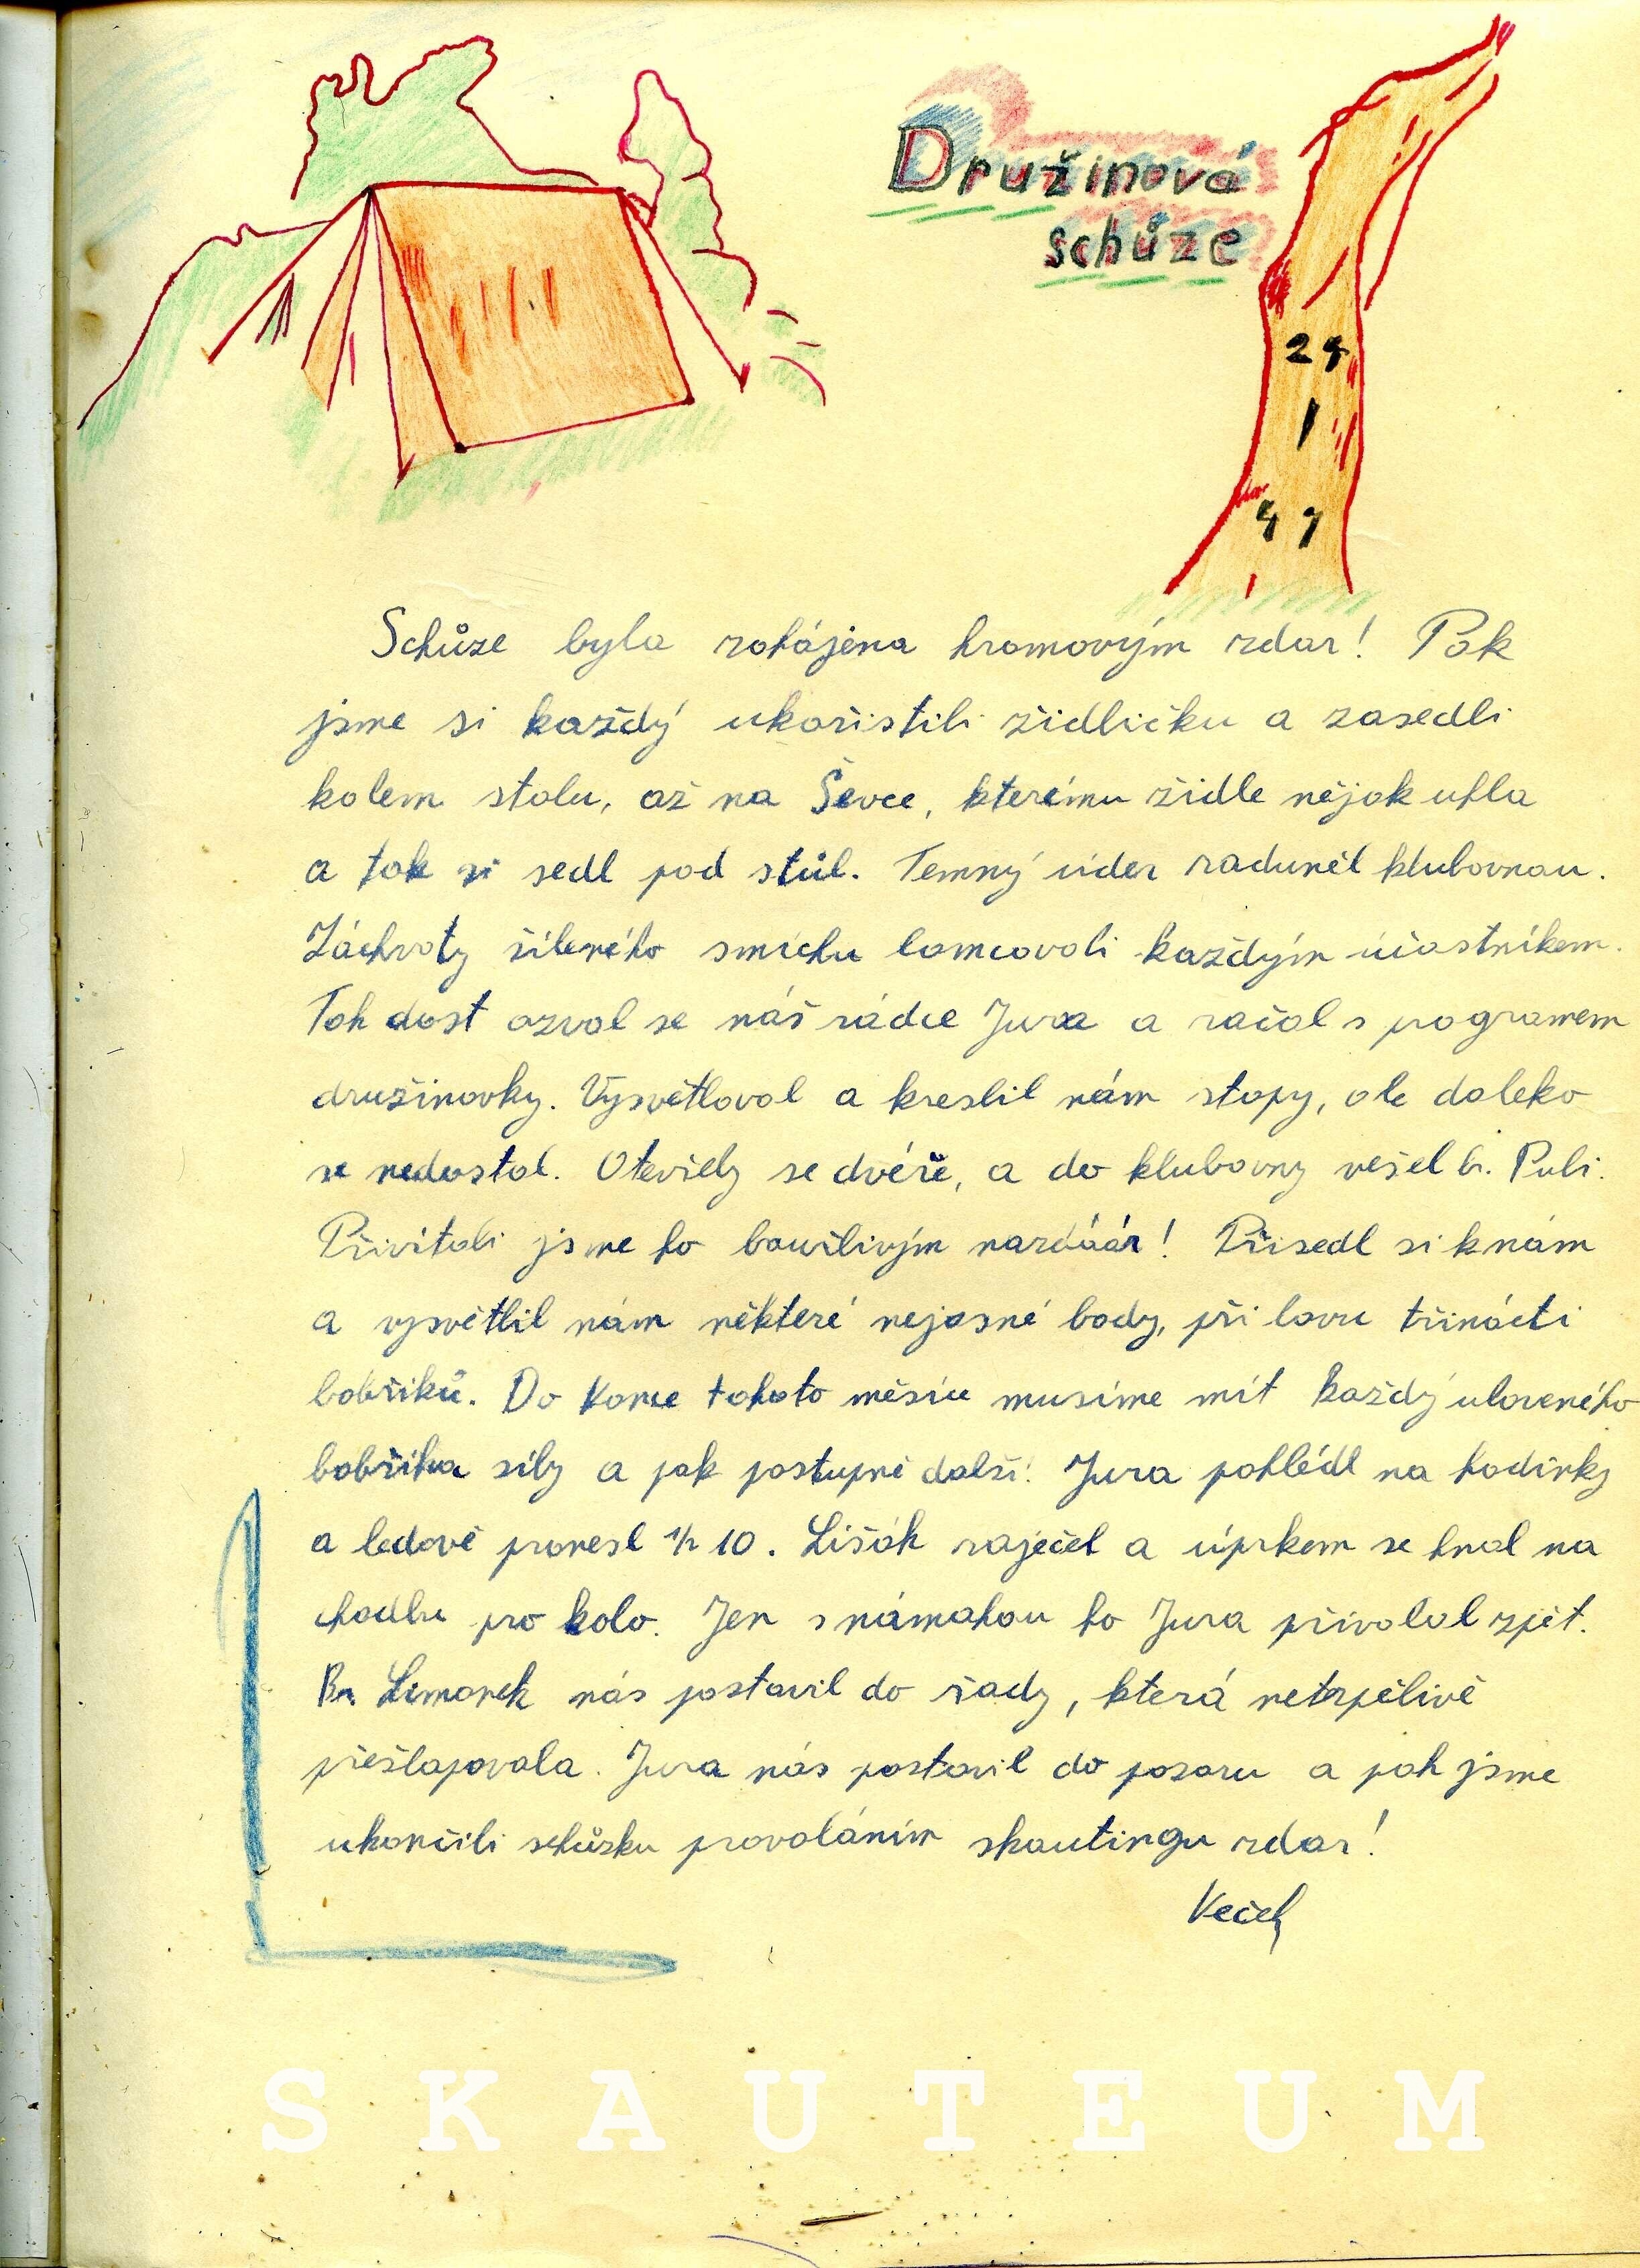 Družinová
schůze
24
1
47
Schůze byla zahájena hromovým zdar! Pak
jsme si každý ukořistili židličku a zasedli
kolem stolu, až na Ševce, kterému židle nějak uhla
a tak si sedl pod stůl. Temný úder zaduněl klubovnou.
Záchvaty šíleného smíchu lomcovali každým účastníkem.
Tak dost ozval se náš rádce Jura a začal s pogramem
družinovky. Vysvětloval a kreslil nám stopy, ale daleko
se nedostal. Otevřely se dvéře, a do klubovny vešel br. Puli.
Přivítali jsme ho bouřlivým nazdáár! Přisedl si k nám
a vysvětlil nám některé nejasné body, při lovu třinácti
bobříků. Do konce tohoto měsíce musíme mít každý uloveného
bobříka síly a pak postupně další. Jura pohlédl na hodinky
a ledově pronesl 1/2 10. Lišák zaječel a úprkem se hnal na
chodbu pro kolo. Jen s námahou ho Jura přivolal zpět.
Br. Limonek nás postavil do řady, která netrpělivě
přešlapovala. Jura nás postavil do pozoru a pak jsme
ukončili schůzku provoláním skautingu zdar!
SKAUTEUM